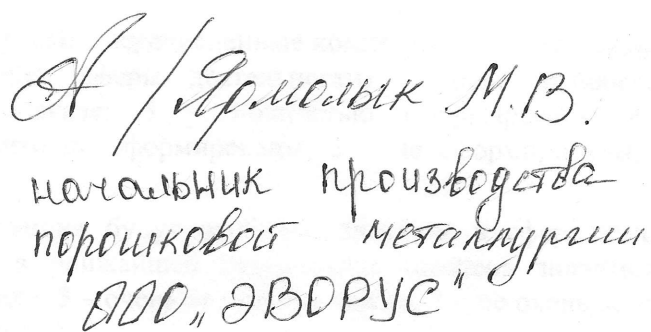 /Ярмолык М.В.
начальник производства
порошковой металлургии
ООО „ЭВОРУС"